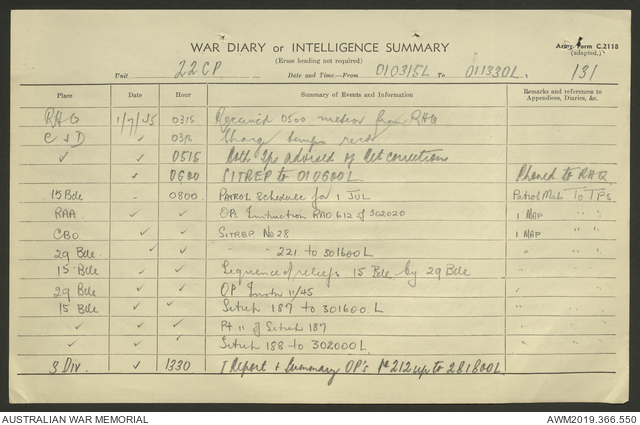 WAR DIARY or INTELLIGENCE SUMMARY
Army Form C.2118
(Erase heading not required)
(adapted.)
Unit 22 CP Date and Time—From 010315L To 011330L 131
Place Date Hour Summary of Events and Information Remarks and references to Appendices, Diaries, &c.
RHQ 1/7/45 0315 Received 0500 meteor from RHQ
C & D ✓ 0315 Charge temps recd
✓ ✓ 0515 advised of Met corrections
✓ 0600 SITREP to 010600L Phoned to RHQ
15 Bde - 0800 PATROL Schedule for 1 JUL Patrol To TPs
RAA ✓ ✓ OP. Instruction RAO 612 of 302020 1 MAP " "
CBO ✓ ✓ SITREP No 28 1 MAP " "
29 Bde. ✓ ✓ " " 221 to 301600L "
15 Bde ✓ ✓ Sequence of reliefs 15 Bde by 29 Bde "
29 Bde ✓ ✓ OP Instr 11/45 "
15 Bde ✓ ✓ Sitrep 187 to 301600.L "
✓ ✓ ✓ Pt 11 of Sitrep 187 "
✓ ✓ ✓ Sitrep 188 to 302000L "
3 Div. ✓ 1330 I Report & Summary OP's No 212 up to 281800L "
AUSTRALIAN WAR MEMORIAL AWM2019.366.550